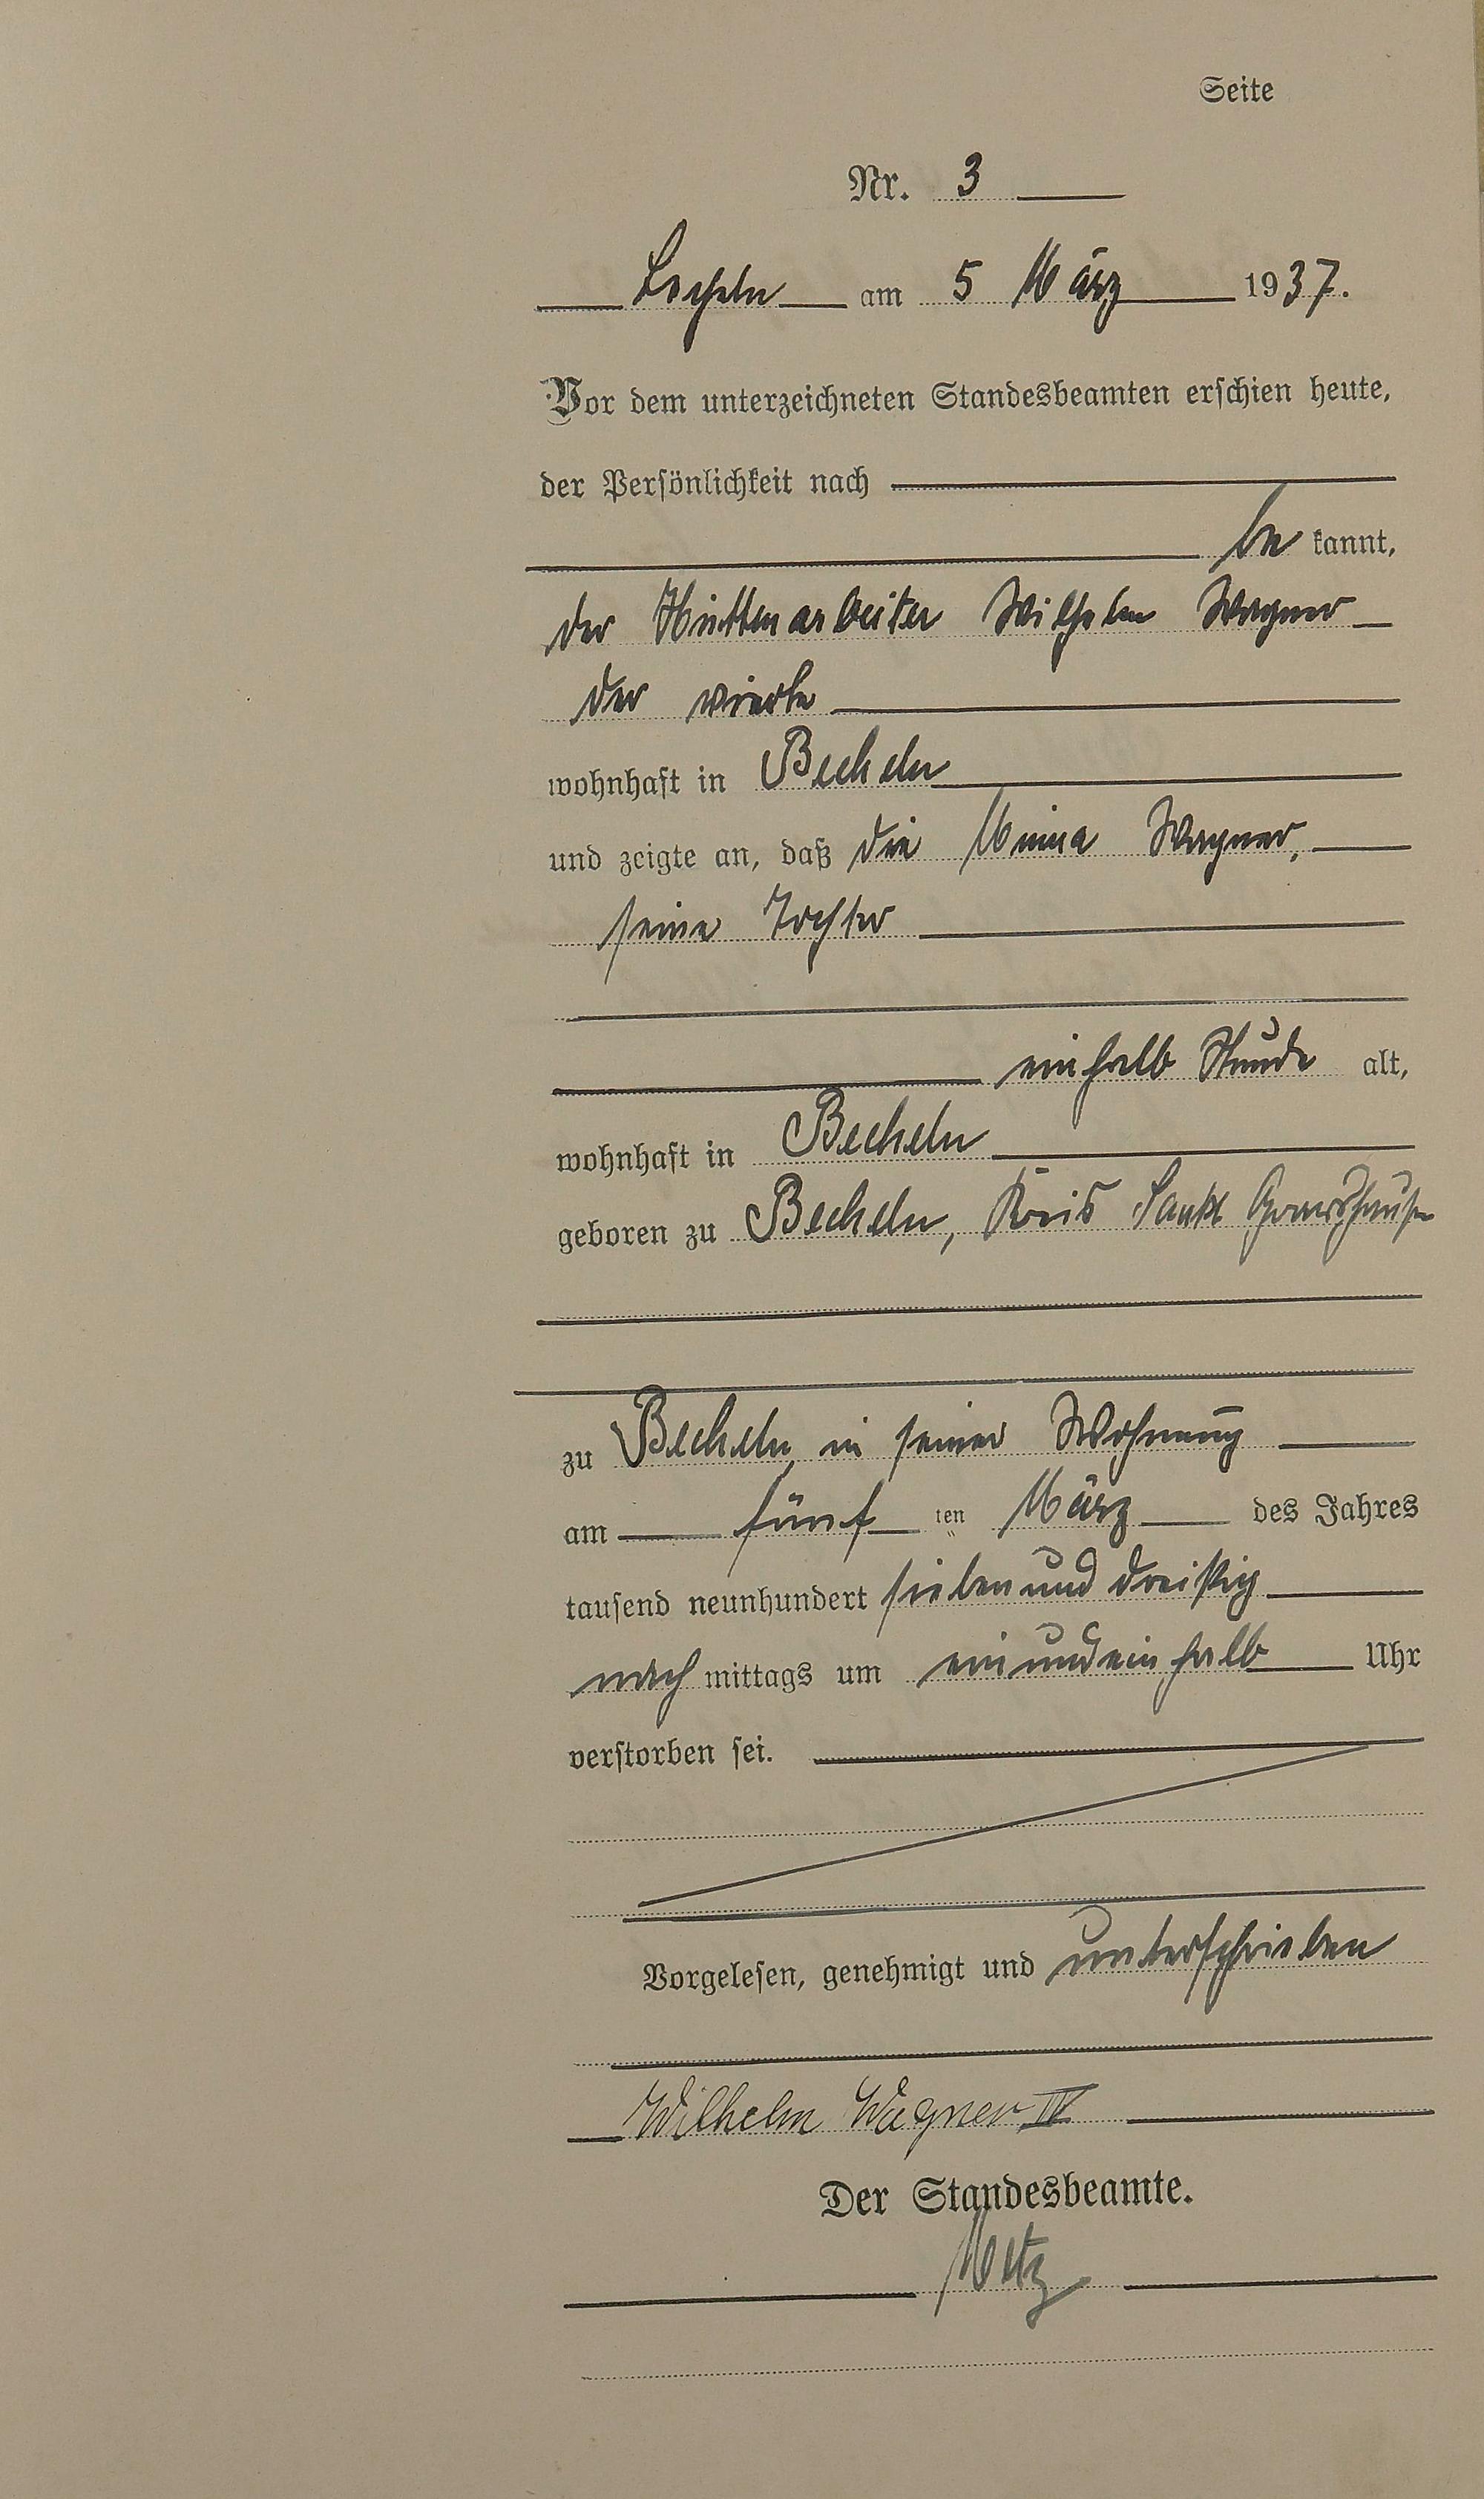 Seite
Nr. 3
Becheln am 5 März 1937.
Vor dem unterzeichneten Standesbeamten erschien heute,
der Persönlichkeit nach
be kannt,
der Hüttenarbeiter Wilhelm Wagner
der vierte
wohnhaft in Becheln
und zeigte an, daß die Minna Wagner,
seine Tochter
einhalb Stunde alt,
wohnhaft in Becheln
geboren zu Becheln, Kreis Sankt Goarshausen
zu Becheln, in seiner Wohnung
am fünf ten März des Jahres
tausend neunhundert siebenunddreißig
nach mittags um einundeinhalb Uhr
verstorben sei.
Vorgelesen, genehmigt und unterschrieben
Wilhelm Wagner IV
Der Standesbeamte.
Metz